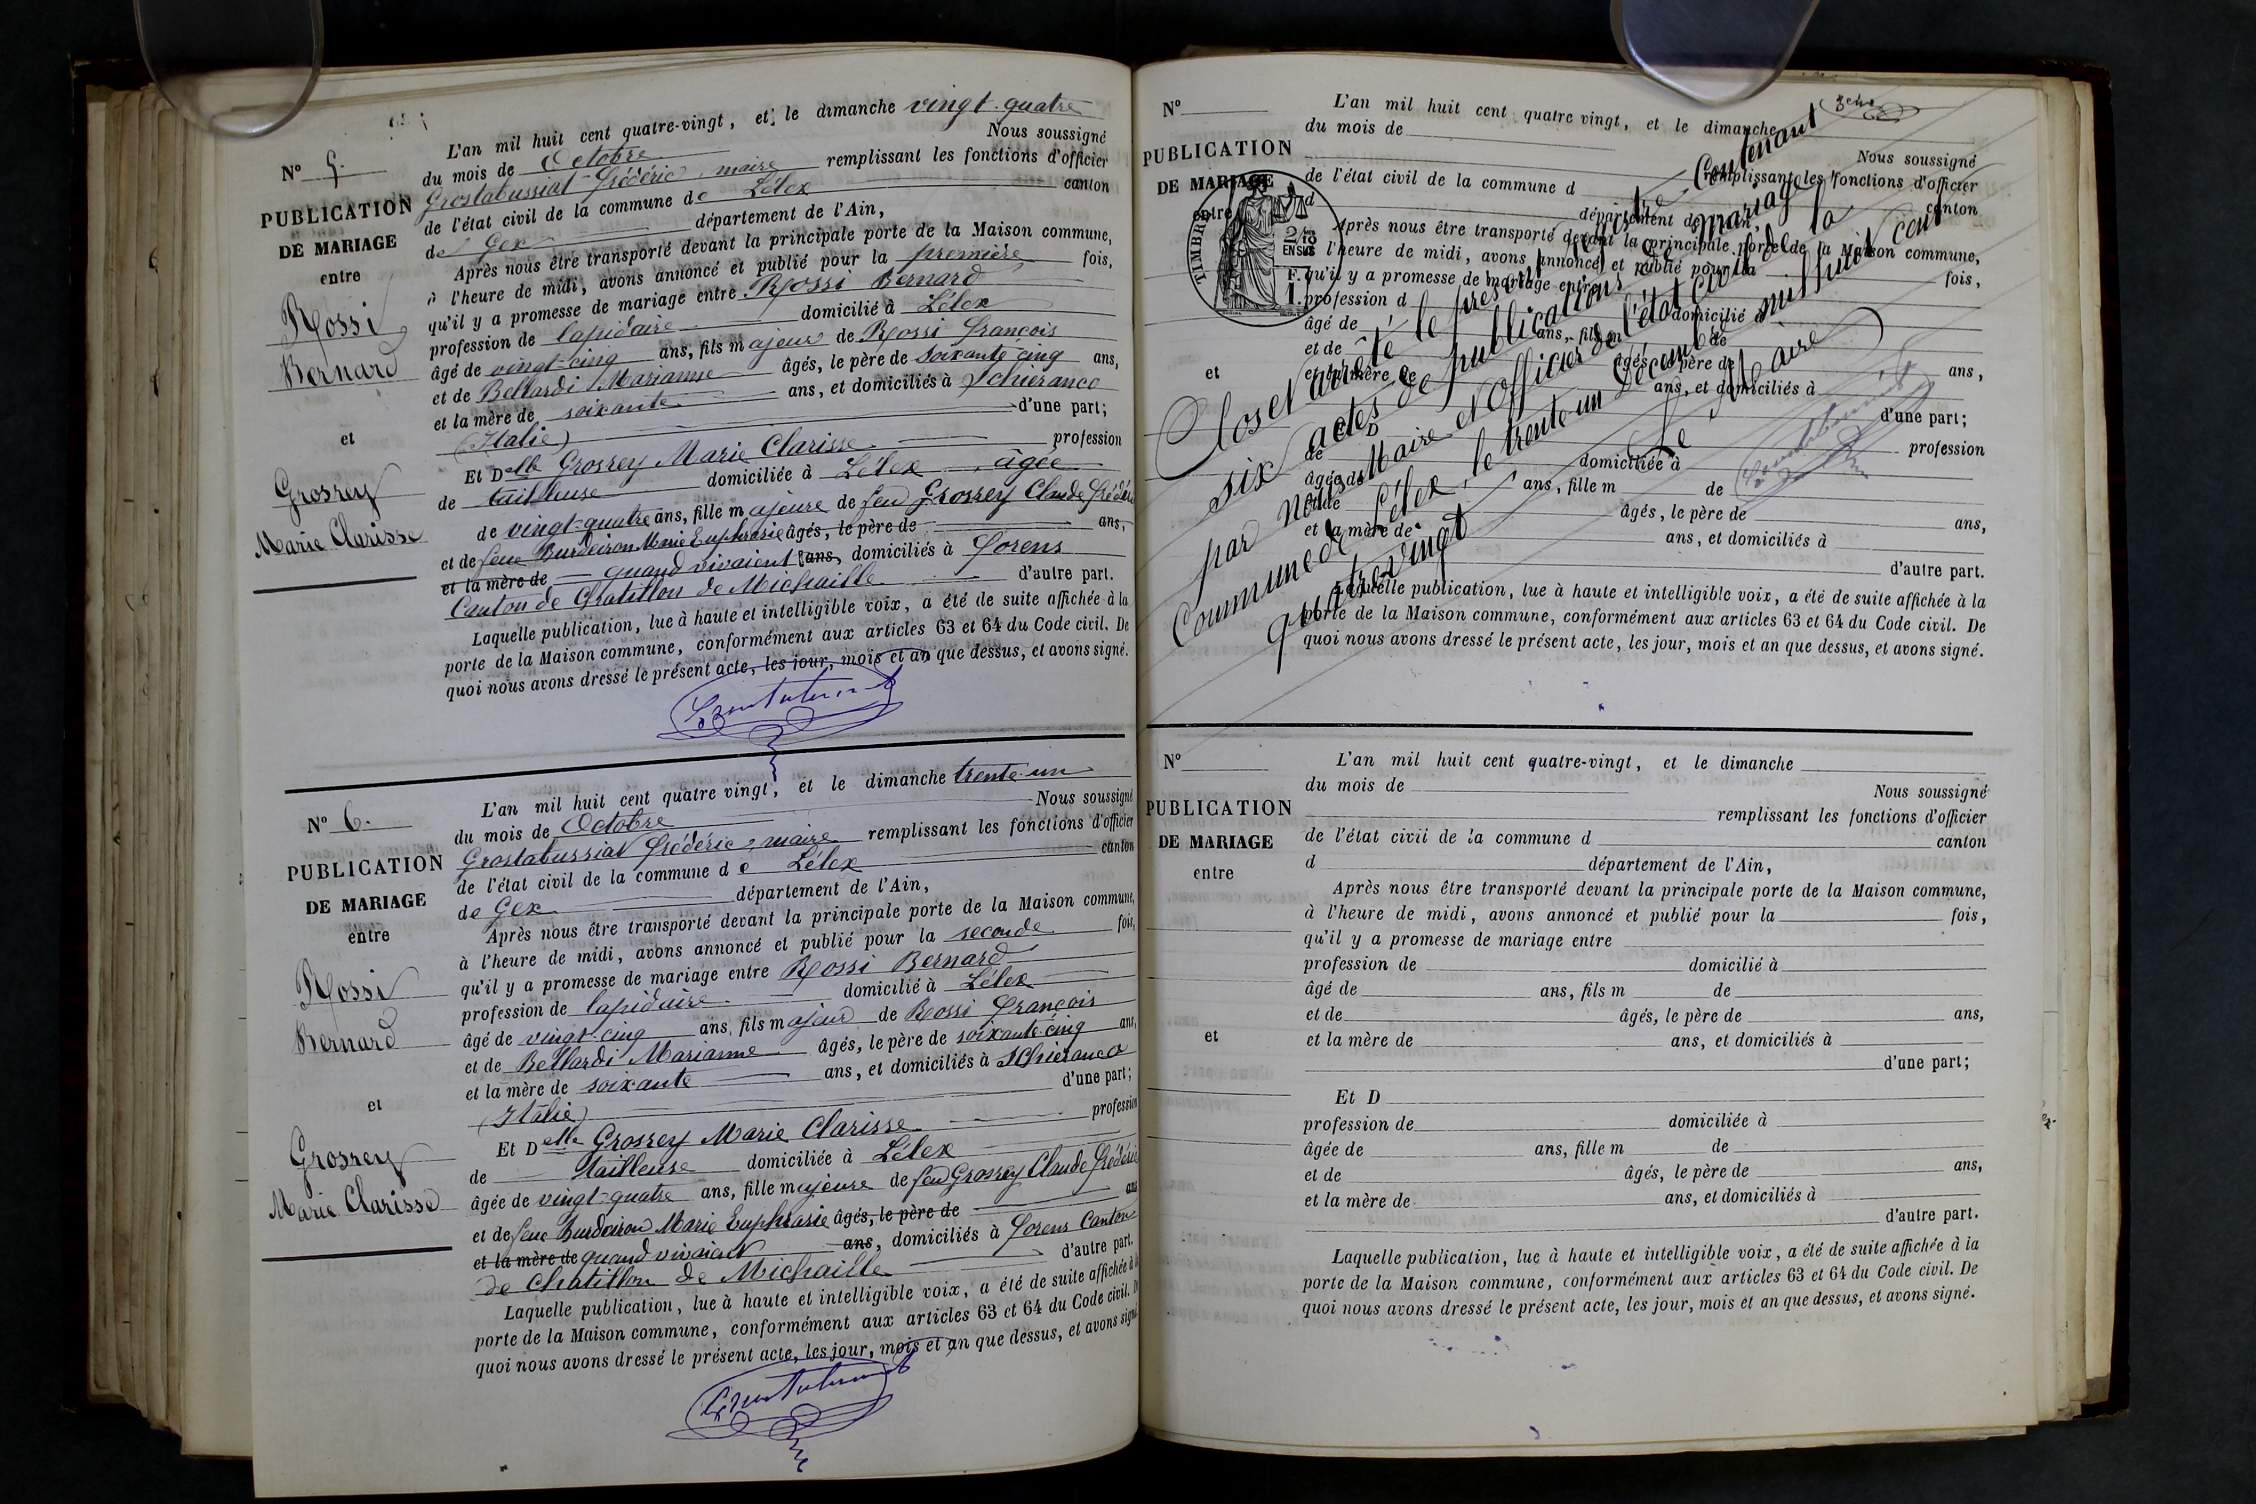 L'an mil huit cent quatre-vingt, et le dimanche vingt-quatre
du mois de Octobre Nous soussigné
Grostabussiat Frédéric, maire remplissant les fonctions d'officier
de l'état civil de la commune de Lélex canton
de Gex département de l'Ain,
Après nous être transporté devant la principale porte de la Maison commune,
à l'heure de midi, avons annoncé et publié pour la première fois,
qu'il y a promesse de mariage entre Rossi Bernard
profession de lapidaire domicilié à Lélex
âgé de vingt-cinq ans, fils majeur de Rossi François
et de Bellardi Marianne âgés, le père de soixante cinq ans,
et la mère de soixante ans, et domiciliés à Schieranco
(Italie) d'une part;
Et Delle Grosrey Marie Clarisse profession
de tailleuse domiciliée à Lélex, âgée
de vingt-quatre ans, fille majeure de feu Grosrey Claude Frédéric
et de feue Burdeiron Marie Euphrasie âgés, le père de ans,
et la mère de quand vivaient ans, domiciliés à Lorens
Canton de Chatillon de Michaille d'autre part.
Laquelle publication, lue à haute et intelligible voix, a été de suite affichée à la
porte de la Maison commune, conformément aux articles 63 et 64 du Code civil. De
quoi nous avons dressé le présent acte, les jour, mois et an que dessus, et avons signé.
N° 5.
PUBLICATION
DE MARIAGE
entre
Rossi
Bernard
et
Grosrey
Marie Clarisse
L'an mil huit cent quatre vingt, et le dimanche trente-un
du mois de Octobre Nous soussigné
Grostabussiat Frédéric, maire remplissant les fonctions d'officier
de l'état civil de la commune de Lélex canton
de Gex département de l'Ain,
Après nous être transporté devant la principale porte de la Maison commune,
à l'heure de midi, avons annoncé et publié pour la seconde fois,
qu'il y a promesse de mariage entre Rossi Bernard
profession de lapidaire domicilié à Lélex
âgé de vingt-cinq ans, fils majeur de Rossi François
et de Bellardi Marianne âgés, le père de soixante-cinq ans,
et la mère de soixante ans, et domiciliés à Schieranco
(Italie) d'une part;
Et Delle Grosrey Marie Clarisse profession
de tailleuse domiciliée à Lélex
âgée de vingt-quatre ans, fille majeure de feu Grosrey Claude Frédéric
et de feue Burdeiron Marie Euphrasie âgés, le père de ans
et la mère de quand vivaient ans, domiciliés à Lorens Canton
de Chatillon de Michaille d'autre part.
Laquelle publication, lue à haute et intelligible voix, a été de suite affichée à la
porte de la Maison commune, conformément aux articles 63 et 64 du Code civil. De
quoi nous avons dressé le présent acte, les jour, mois et an que dessus, et avons signé
N° 6.
PUBLICATION
DE MARIAGE
entre
Rossi
Bernard
et
Grosrey
Marie Clarisse
N°
PUBLICATION
DE MARIAGE
entre
et
TIMBRE
EN SUS
L'an mil huit cent quatre vingt, et le dimanche
du mois de Nous soussigné
remplissant les fonctions d'officier
de l'état civil de la commune d canton
d département de
Après nous être transporté devant la principale porte de la Maison commune,
l'heure de midi, avons annoncé et publié pour la fois,
qu'il y a promesse de mariage entre
profession d domicilié à
âgé de ans, fils m de
et de âgés, le père de ans,
et la mère de ans, et domiciliés à
d'une part;
Et D profession
de domiciliée à
âgée de ans, fille m de
et de âgés, le père de ans,
et la mère de ans, et domiciliés à
d'autre part.
Laquelle publication, lue à haute et intelligible voix, a été de suite affichée à la
porte de la Maison commune, conformément aux articles 63 et 64 du Code civil. De
quoi nous avons dressé le présent acte, les jour, mois et an que dessus, et avons signé.
Clos et arrêté le présent registre Contenant
six actes de publications de mariage
par nous Maire et Officier de l'état civil de la
Commune de Lélex, le trente-un Décembre mil huit cent
quatrevingt
Le Maire
N°
PUBLICATION
DE MARIAGE
entre
et
L'an mil huit cent quatre-vingt, et le dimanche
du mois de Nous soussigné
remplissant les fonctions d'officier
de l'état civil de la commune d canton
d département de l'Ain,
Après nous être transporté devant la principale porte de la Maison commune,
à l'heure de midi, avons annoncé et publié pour la fois,
qu'il y a promesse de mariage entre
profession de domicilié à
âgé de ans, fils m de
et de âgés, le père de ans,
et la mère de ans, et domiciliés à
d'une part;
Et D
profession de domiciliée à
âgée de ans, fille m de
et de âgés, le père de ans,
et la mère de ans, et domiciliés à
d'autre part.
Laquelle publication, lue à haute et intelligible voix, a été de suite affichée à la
porte de la Maison commune, conformément aux articles 63 et 64 du Code civil. De
quoi nous avons dressé le présent acte, les jour, mois et an que dessus, et avons signé.